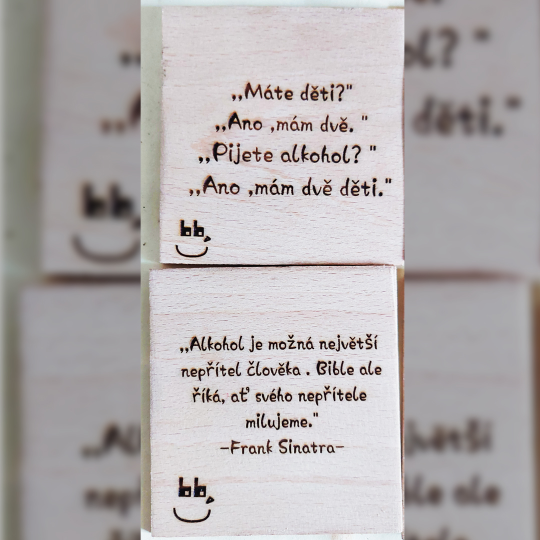 ,,Máte děti?"
,,Ano ,mám dvě. "
,,Pijete alkohol? "
,,Ano ,mám dvě děti."
,,Alkohol je možná největší
nepřítel člověka . Bible ale
říká, ať svého nepřítele
milujeme."
-Frank Sinatra-